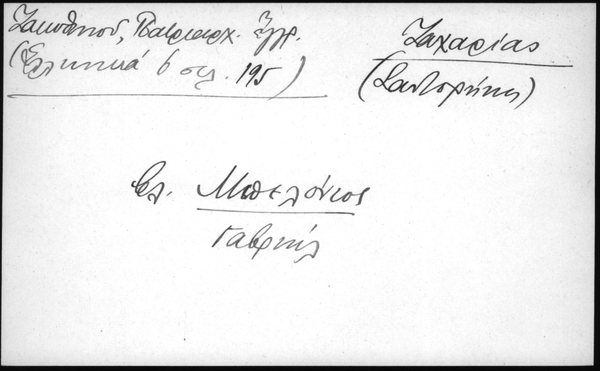 Ζακυθηνού, Πατριαρχ. Έγγρ.
(Ελληνικά 6 σελ. 195)
Ζαχαρίας
(Σαντορήνη)
βλ. Μπελόνιος
Γαβριήλ